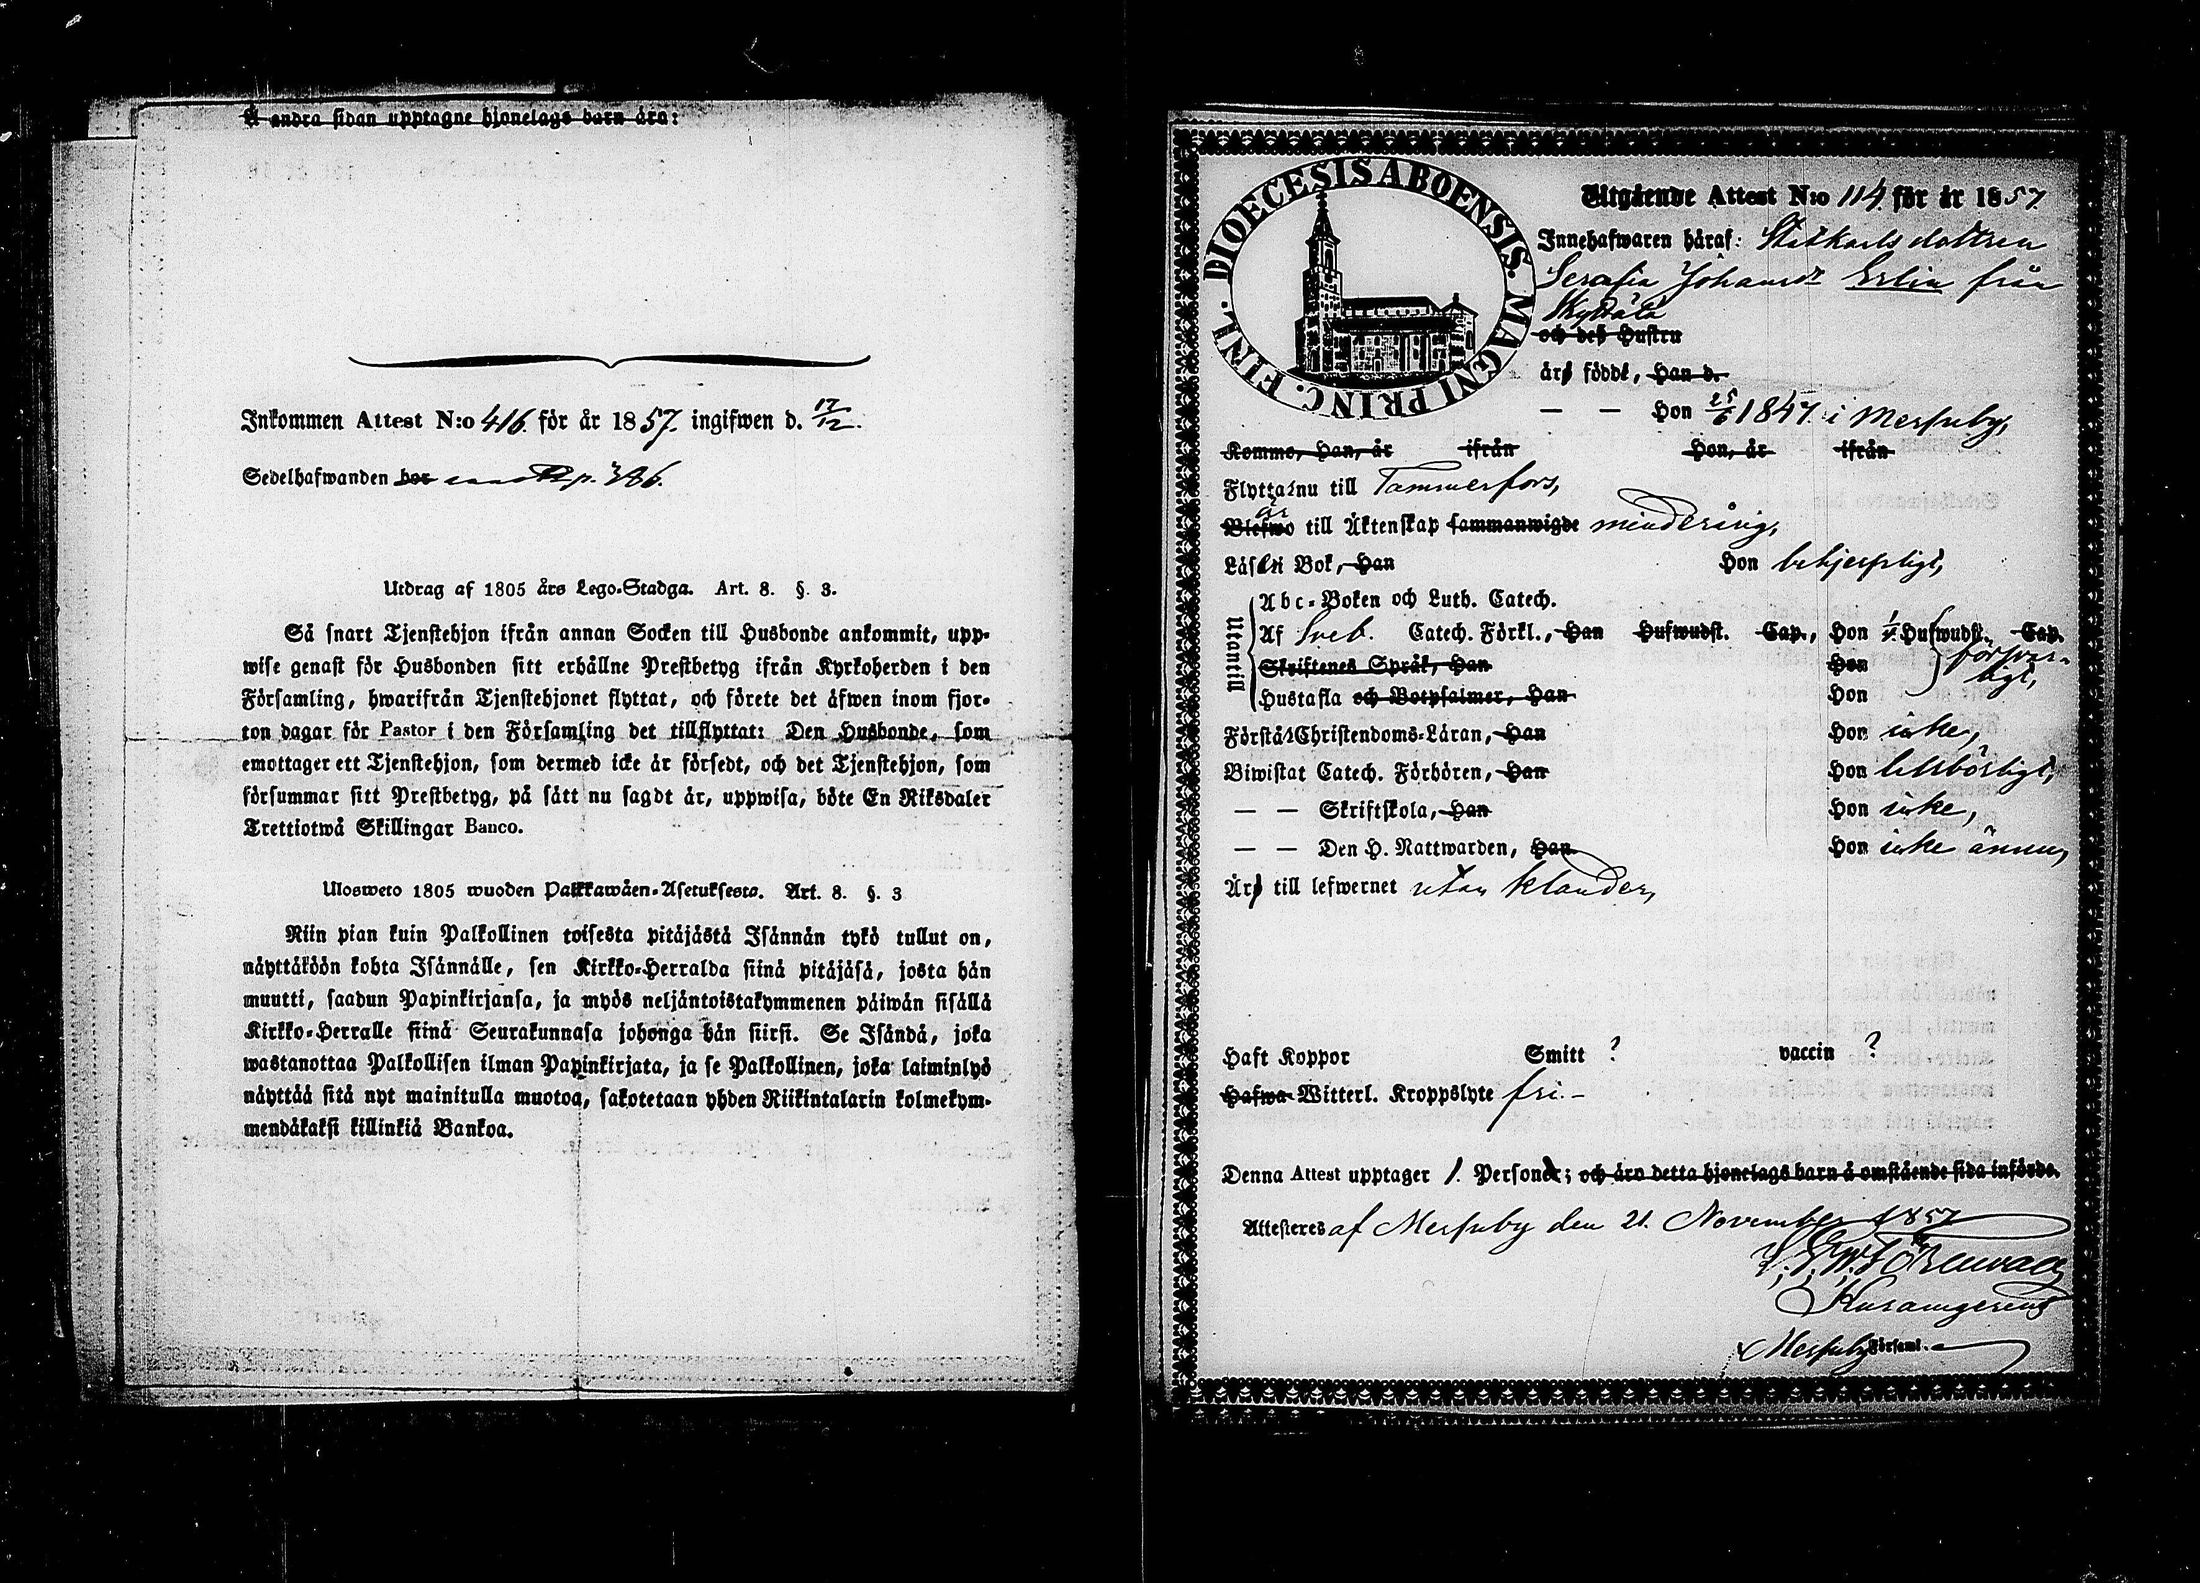 Å andra sidan upptagne hjonelags barn äro:
Inkommen Attest N:o 416 för år 1857. ingifwen d. 17/12.
Sedelhafwanden bor p. 386.
Utdrag af 1805 års Lego-Stadga. Art. 8. §. 3.
Så snart Tjenstehjon ifrån annan Socken till Husbonde ankommit, upp-
wise genast för Husbonden sitt erhållne Prestbetyg ifrån Kyrkoherden i den
Församling, hwarifrån Tjenstehjonet flyttat, och förete det äfwen inom fjor-
ton dagar för Pastor i den Församling det tillflyttat: Den Husbonde, som
emottager ett Tjenstehjon, som dermed icke är försedt, och det Tjenstehjon, som
försummar sitt Prestbetyg, på sätt nu sagdt är, uppwisa, böte En Riksdaler
Trettiotwå Skillingar Banco.
Ulosweto 1805 wuoden Palkkawäen-Asetuksesta. Art. 8. §. 3
Niin pian kuin Palkollinen toisesta pitäjästä Isännän tykö tullut on,
näyttäköön kohta Isännälle, sen Kirkko-Herralda siinä pitäjäsä, josta hän
muutti, saadun Papinkirjansa, ja myös neljäntoistakymmenen päiwän sisällä
Kirkko-Herralle siinä Seurakunnasa johonga hän siirsi. Se Isändä, joka
wastanottaa Palkollisen ilman Papinkirjata, ja se Palkollinen, joka laiminlyö
näyttää sitä nyt mainitulla muotoa, sakotetaan yhden Riikintalarin kolmekym-
mendäkaksi killinkiä Bankoa.
DIOECESIS ABOENSIS. MAGNI PRINC. FINL.
Utgående Attest N:o 114 för år 1857.
Innehafwaren häraf: Statkarls dottren
Serafia Johansdr Erlin från
Kyttälä
och deß Hustru
äro födde, Han d.
— — Hon 25/6 1847 i Messuby,
Kommo, Han, år ifrån Hon, år ifrån
Flyttar nu till Tammerfors,
är
Blefwo till Äktenskap sammanwigde minderårig,
Läser i Bok, Han Hon behjerpligt,
Utantill
Abc-Boken och Luth. Catech.
Af Sveb. Catech. Förkl., Han Hufwudst. Cap., Hon 1/4 Hufwudst. Cap.
Skriftenes Språk, Han Hon försvar-
Hustafla och Botpsalmer, Han Hon ligt,
Förstår Christendoms-Läran, Han Hon icke,
Biwistat Catech. Förhören, Han Hon
— — Skriftskola, Han Hon icke,
— — Den H. Nattwarden, Han Hon icke ännu,
Äro till lefwernet utan klander,
Haft Koppor Smitt ? vaccin ?
Hafwa Witterl. Kroppslyte fri. -
Denna Attest upptager 1. Personer; och äro detta hjonelags barn å omstående sida införde.
Attesteres af Messuby den 21. November 1857
Messuby Församl.